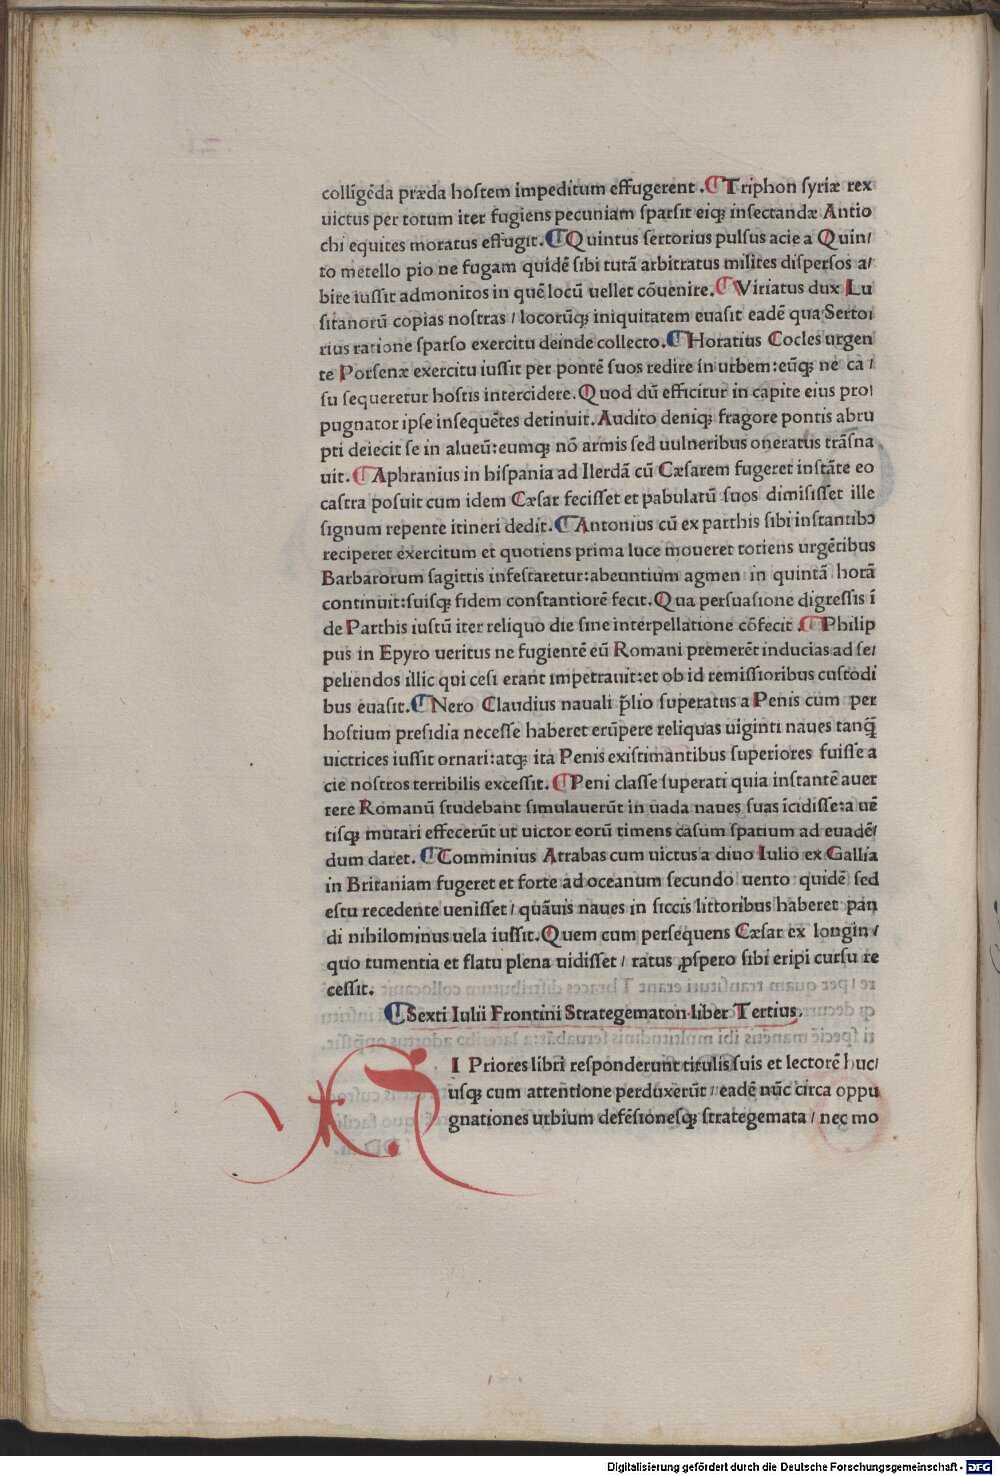 collīgēda præda hoſtem impeditum effugerent .¶Triphon ſyriæ rex
uictus per totum iter fugiens pecuniam ſparſit eiqꝫ inſectandæ Antio
chi equites moratus effugit.¶Quintus ſertorius pulſus acie a Quin/
to metello pio ne fugam quidē ſibi tutā arbitratus milites diſperſos a/
bire iuſſit admonitos in quē locū uellet cōuenire.¶Viriatus dux Lu
ſitanorū copias noſtras / locorūqꝫ iniquitatem euaſit eadē qua Sertoı
rius ratione ſparſo exercitu deinde collecto.¶Horatius Cocles urgen
te Porſenæ exercitu iuſſit per pontē ſuos redire in urbem:eūqꝫ ne ca /
ſu ſequeretur hoſtis intercidere.Quod dū efficitur in capite eius proı
pugnator ipſe inſequētes detinuit.Audito deniqꝫ fragore pontis abru
pti deiecit ſe in alueū:eumqꝫ nō armis ſed uulneribus oneratus trāſna
uit.¶Aphranius in hiſpania ad Ilerdā cū Cæſarem fugeret inſtāte eo
caſtra poſuit cum idem Cæſar feciſſet et pabulatū ſuos dimiſiſſet ille
ſignum repente itineri dedit.¶Antonius cū ex parthis ſibi inſtantibꝰ
reciperet exercitum et quotiens prima luce moueret totiens urgētibus
Barbarorum ſagittis infeſtaretur:abeuntium agmen in quintā horā
continuit:ſuiſqꝫ fidem conſtantiorē fecit.Qua perſuaſione digreſſis ī
de Parthis iuſtū iter reliquo die ſine interpellatione cōfecit .¶Philip
pus in Epyro ueritus ne fugientē eū Romani premerēt inducias ad ſeı
peliendos illic qui ceſi erant impetrauit:et ob id remiſſioribus cuſtodi
bus euaſit.¶Nero Claudius nauali p̄lio ſuperatus a Penis cum per
hoſtium preſidia neceſſe haberet erūpere reliquas uiginti naues tanq̄
uictrices iuſſit ornari:atqꝫ ita Penis exiſtimantibus ſuperiores fuiſſe a
cie noſtros terribilis exceſſit.¶Peni claſſe ſuperati quia inſtantē auer
tere Romanū ſtudebant ſimulauerūt in uada naues ſuas īcidiſſe:a uē
tiſqꝫ mutari effecerūt ut uictor eorū timens caſum ſpatium ad euadē/
dum daret.¶Comminius Atrabas cum uictus a diuo Iulio ex Gallia
in Britaniam fugeret et forte ad oceanum ſecundo uento quidē ſed
eſtu recedente ueniſſet / quāuis naues in ſiccis littoribus haberet pan
di nihilominus uela iuſſit.Quem cum perſequens Cæſar ex longin/
quo tumentia et flatu plena uidiſſet / ratus ꝓſpero ſibi eripi curſu re
ceſſit.
¶Sexti Iulii Frontini Strategematon liber Tertius.
SI Priores libri reſponderunt titulis ſuis et lectorē huc/
uſqꝫ cum attentione perduxerūt / eadē nūc circa oppu
gnationes urbium defēſioneſqꝫ ſtrategemata / nec mo
Digitalisierung gefördert durch die Deutsche Forschungsgemeinschaft - DFG